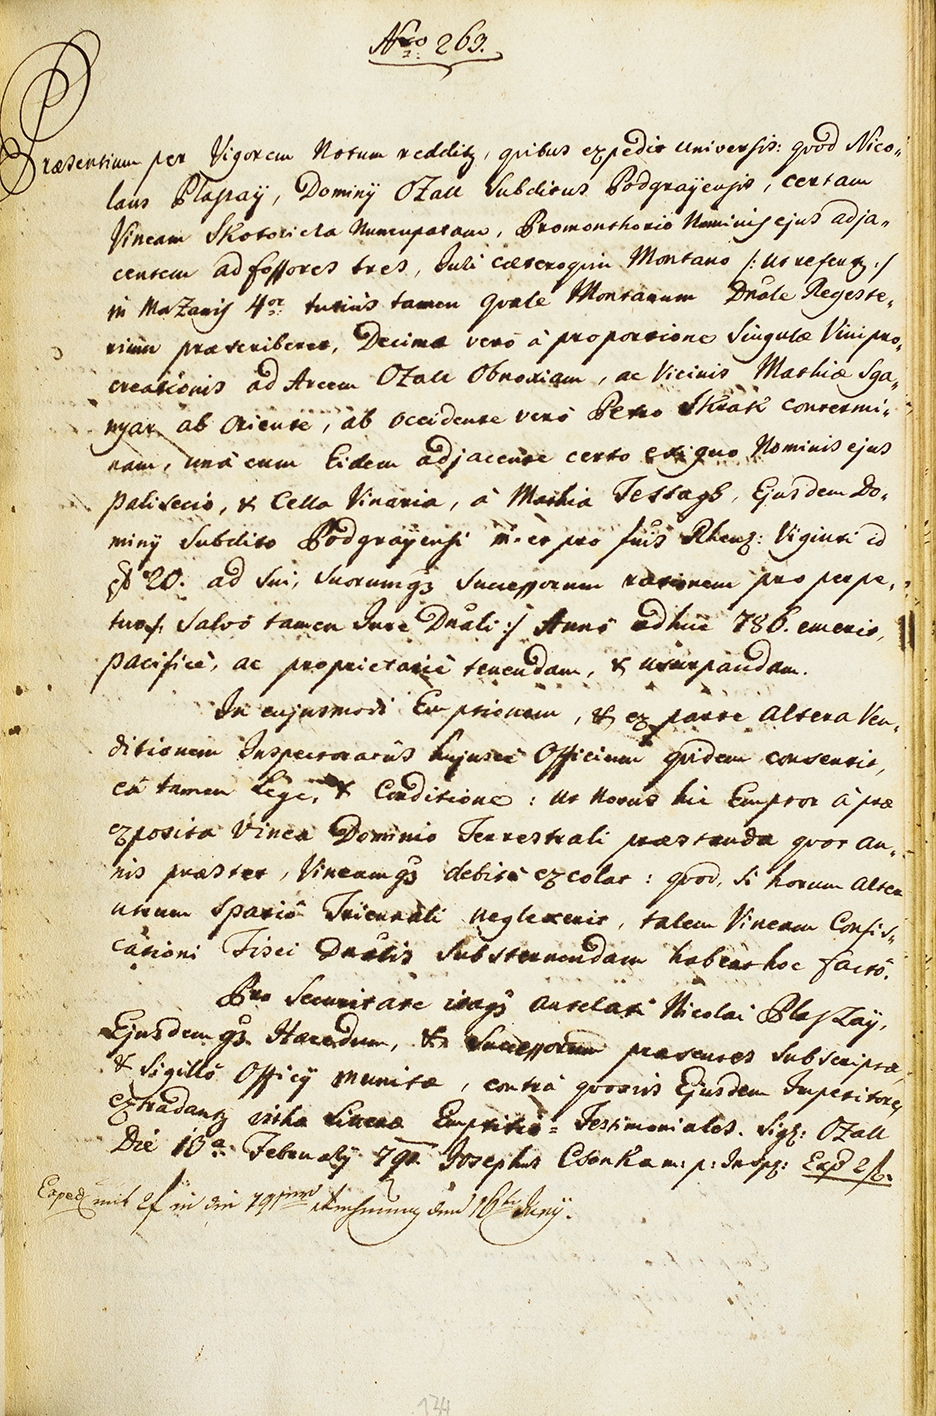 Nro 263.
Præsentium per Vigorem Notum redditq, quibus expedit universis: quod Nico-
laus Plaszaÿ, Dominÿ Ozall Subditus Podgraÿensis, certam
Vineam Skotoricza Nuncupatam, Promonthorio Nominis ejus adja-
centem ad fossores tres, Juli cæteroquin Montano /: ut refertq :/
in 4or tutius tamen quale Montanum Dnale Regeste-
rium præscriberet, Decimæ verò à proportione Singulæ Vini pro-
creationis ad Arcem Ozall Obnoxiam, ac Vicinis Mathiæ Sga-
nyar ab Oriente, ab occidente verò Petro Skrak contermi-
nam, unà cum Eidem adjacente certo exiguo Nominis ejus
Palisecio, & Cella Vinaria, à Mathia Tessagh, Ejusdem Do-
minÿ Subdito Podgraÿensi m. er pro suis Rhenq: Viginti id
20. ad Sui, Suorumqs Successorum rationem pro perpe-
tuo /: Salvò tamen Jure Dnali :/ Annò adhuc 786. emerit,
pacificè, ac proprietariè tenendam, & usurpandam.
In cujusmodi Emptionem, & ex parte altera Ven-
ditionem Inspectoratûs hujusce Officium quidem consentit,
eâ tamen Lege, & Conditione: ut novus hic Emptor à præ
exposita Vinea Dominio Terrestrali præstanda quot an-
nis præstet, Vineamqs debitè excolat: quod, si horum alter
utrum Spatiò Triennali neglexerit, talem Vineam Confis-
cationi Fisci Dnalis Substernendam habeat hoc factò.
Pro Securitate itaqs antelati Nicolai Plaszaÿ,
Ejusdemqs Hæredum, & Successorum præsentes Subscriptæ,
& Sigillô Officÿ munitæ, contrà quosvis Ejusdem Impetitores
extradantq Literæ Emptitio = Testimoniales. Sigq: Ozall
Die 10a Februarÿ 791. Josephus Csonka m: p: Inspq: Exp 2f.
Exped mit 2f in die 791 Rechnung den 16ten Junÿ.
134